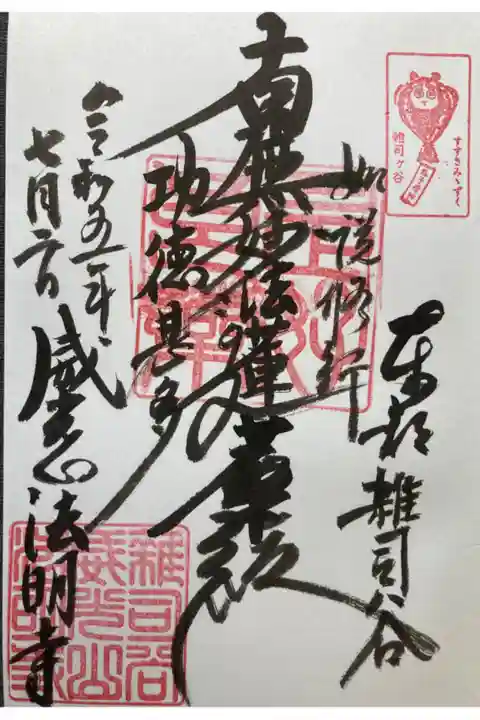 東都雑司谷
如説修行
南無妙法蓮華経
功徳甚多
令和五年
七月二日
威光山法明寺
すすきみゝずく
雑司ヶ谷
雑司谷
威光山